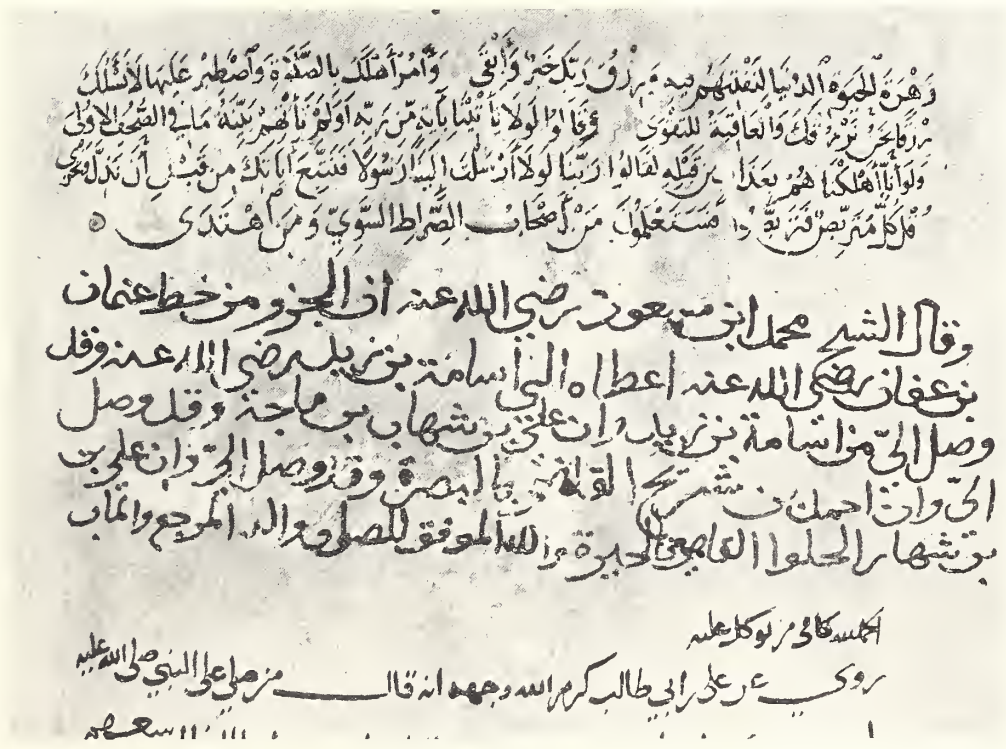 زَهْرَةَ الْحَيٰوةِ الدُّنْيَا لِنَفْتِنَهُمْ فِيهِ وَرِزْقُ رَبِّكَ خَيْرٌ وَأَبْقَى وَأْمُرْ أَهْلَكَ بِالصَّلَوٰةِ وَاصْطَبِرْ عَلَيْهَا لَا نَسْئَلُكَ
رِزْقًا نَحْنُ نَرْزُقُكَ وَالْعَاقِبَةُ لِلتَّقْوَى وَقَالُوا لَوْلَا يَأْتِينَا بِآيَةٍ مِّن رَّبِّهِ أَوَلَمْ تَأْتِهِم بَيِّنَةُ مَا فِي الصُّحُفِ الْأُولَى
وَلَوْ أَنَّا أَهْلَكْنَاهُمْ بِعَذَابٍ مِن قَبْلِهِ لَقَالُوا رَبَّنَا لَوْلَا أَرْسَلْتَ إِلَيْنَا رَسُولًا فَنَتَّبِعَ آيَاتِكَ مِن قَبْلِ أَن نَذِلَّ وَنَخْزَى
قُلْ كُلٌّ مُتَرَبِّصٌ فَتَرَبَّصُوا فَسَتَعْلَمُونَ مَنْ أَصْحَابُ الصِّرَاطِ السَّوِيِّ وَمَنِ اهْتَدَى
وقال الشيخ محمد ابن مسعود رضي الله عنه ان الجزو من خط عثمان
بن عفان رضي الله عنه اعطاه الى أسامة بن زيد رضي الله عنه وقد
وصل اليّ من اسامة بن زيد وان علي بن شهاب بن ماجة وقد وصل
اليّ وان احمد بن شريح القاضي بالبصرة وقد وصل اليّ وان علي بن
بن شهاب الحلوا القاضي الحيرة والله الموفق للصلو واليه المرجع والماب
الحمد لله كافي من توكل عليه
روي عن علي بن ابي طالب كرم الله وجهه انه قال من صلى على النبي صلى الله عليه